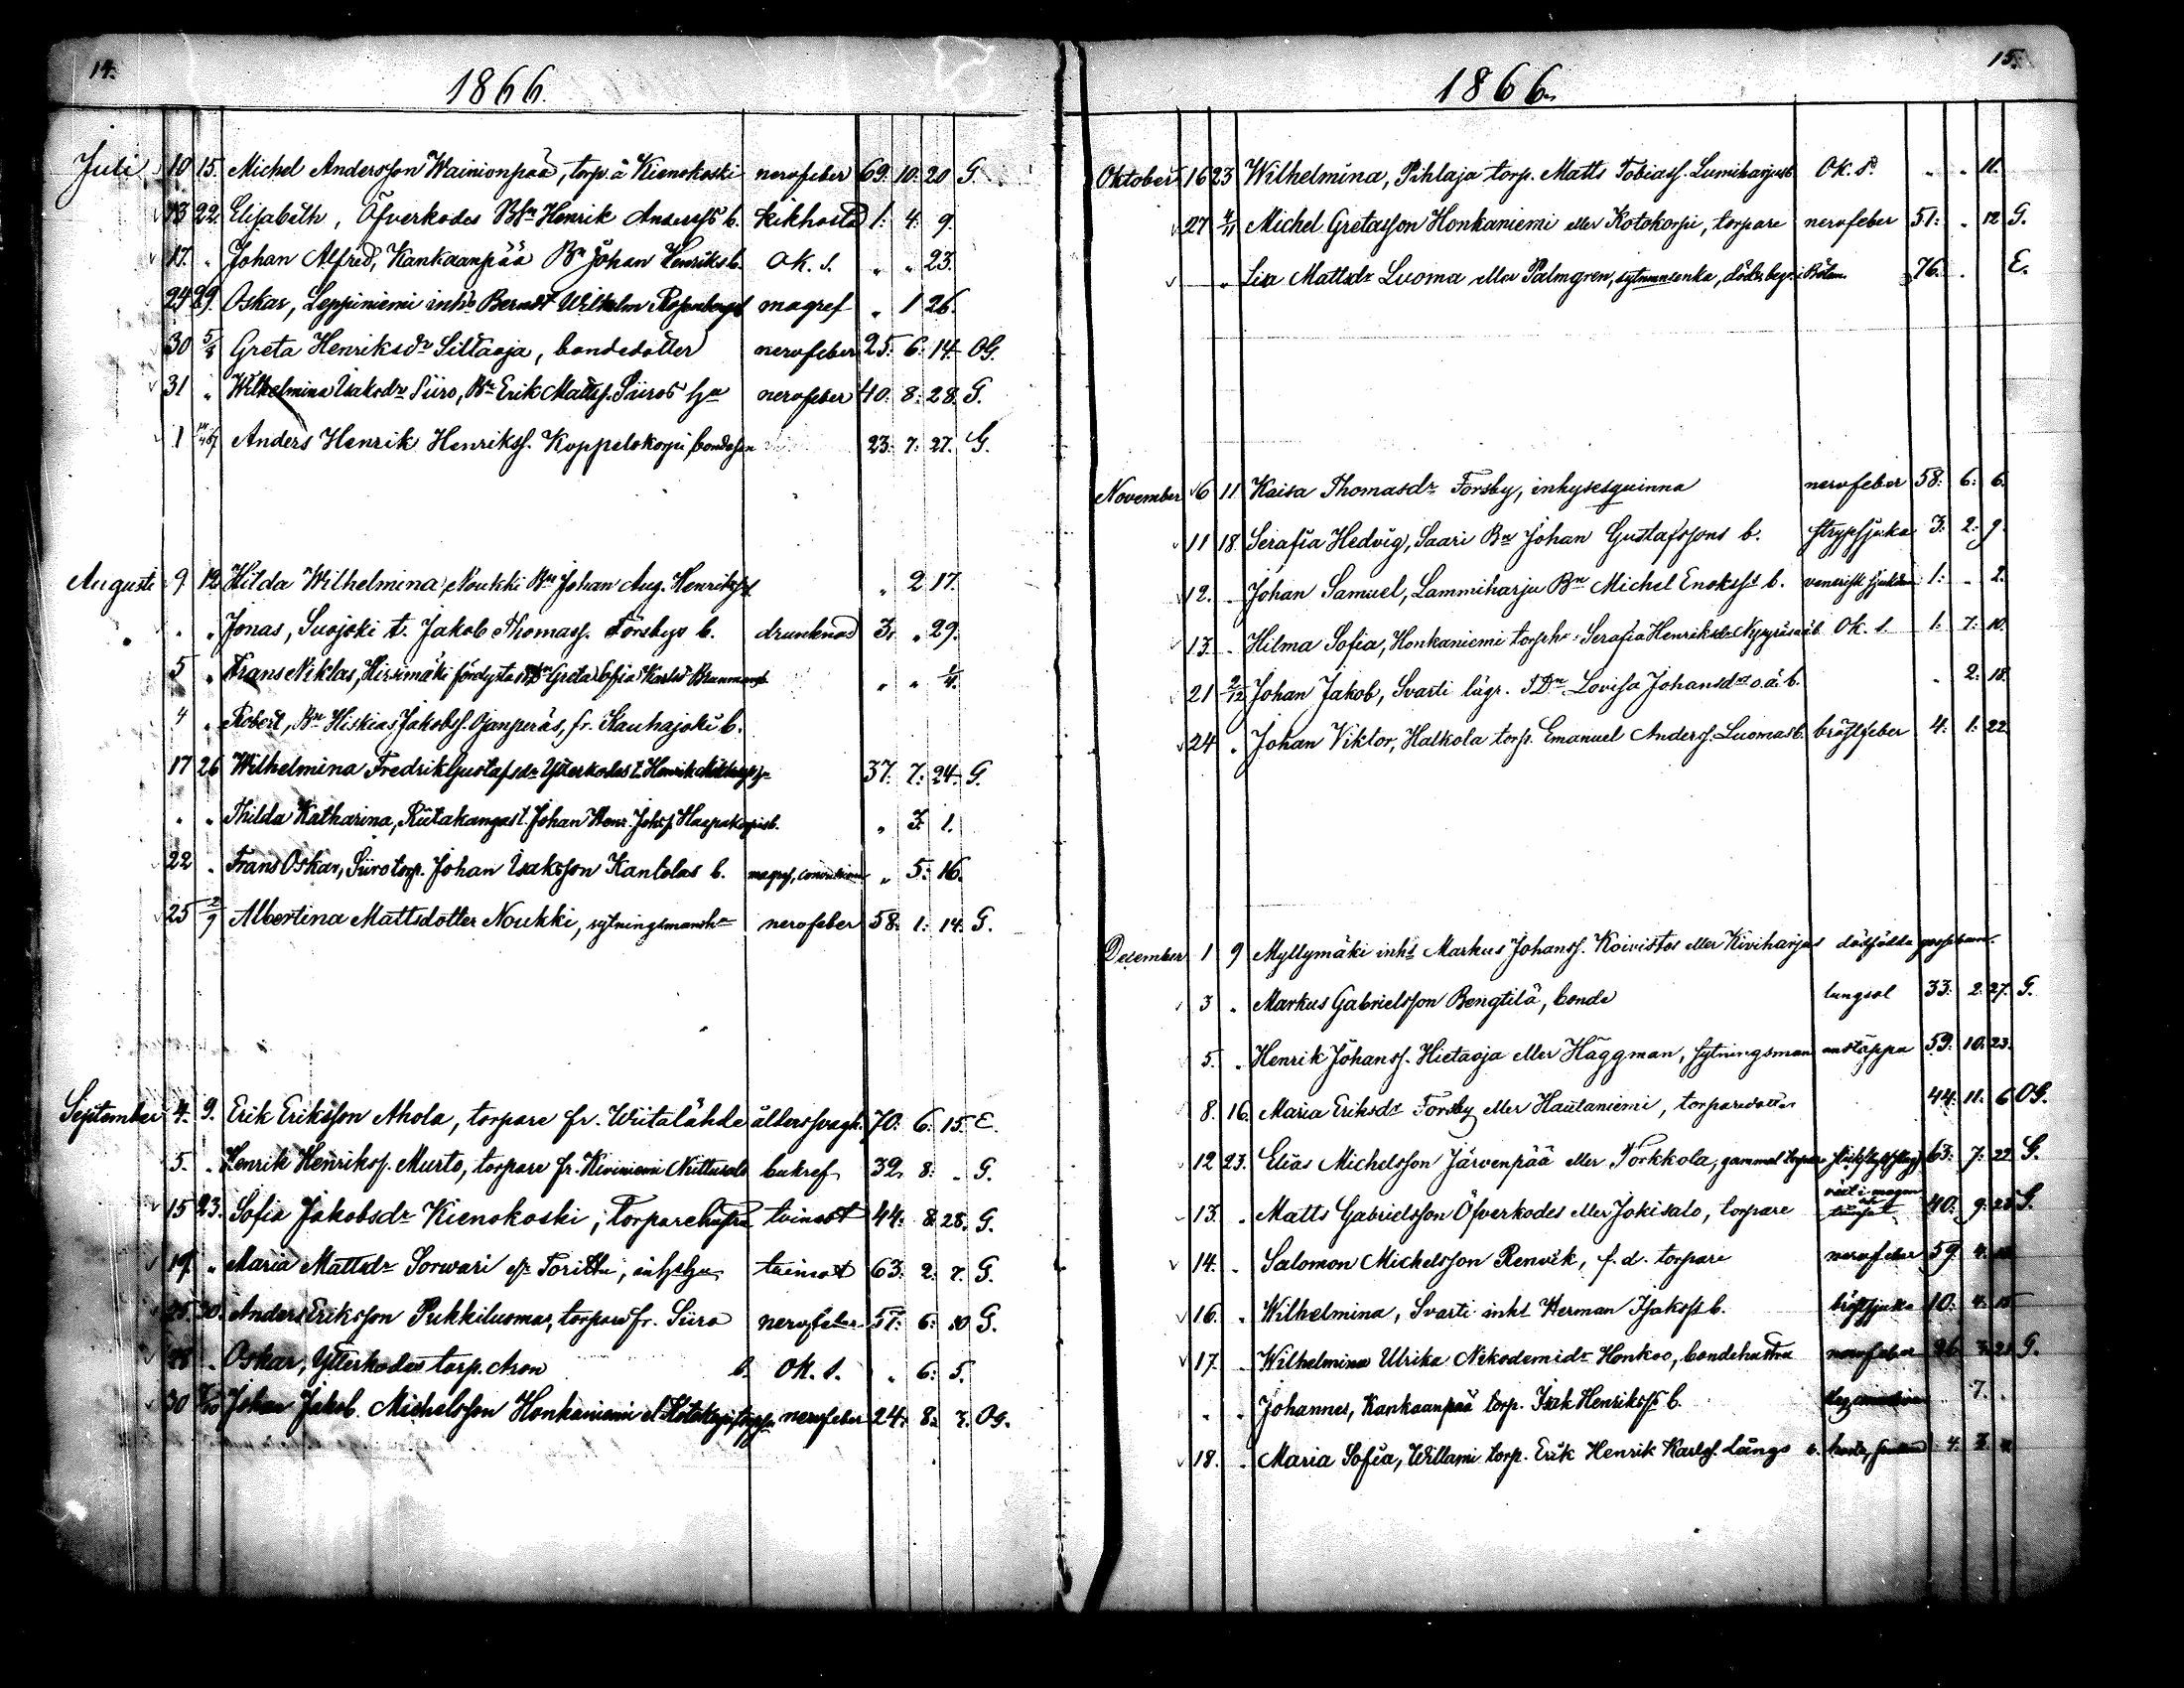 14.
1866.
Juli 10 15. Michel Andersson Wainionpää, torp. å Kienokoski nervfeber 69. 10. 20 G.
13 22. Elisabeth, Öfverkodes Bn Henrik Anderss b. kikhosta 1: 4: 9.
17. " Johan Alfred, Kankaanpää Bn Johan Henriks b. Ok. s. " " 23.
24 29. Oskar, Leppiniemi inhs Berndt Wilhelm magref " 1 26.
30 5/8 Greta Henriksdr Siltaoja, bondedotter nervfeber 25: 6: 14 OG.
31 " Wilhelmina Isaksdr Siiro, Bn Erik Matts. Siiros hu nervfeber 40: 8: 28. G.
1 Anders Henrik Henrikss. Koppelokorpi bondeson 23: 7: 27. G.
Augusti 9 12 Hilda Wilhelmina, Noukki Bn Johan Aug. Henrikss " 2 17.
" " Jonas, Suojoki t. Jakob Thomass. Forsbys b. drunknad 3. " 29.
5 " Frans Niklas, Hirsimäki Greta Sofia Karlsd " " 1/4.
4 " Robert, Bn Hiskias Jakobss. Ojanperäs, fr. Kauhajoki b.
17 26 Wilhelmina Fredrika Gustafsdr Ytterkodes t. Henrik 37. 7: 24. G.
" " Thilda Katharina, Riitakangas t. Johan Henr. " 3. 1.
22 " Frans Oskar, Siiro torp. Johan Isaksson Kantolas b. magref, " 5: 16.
25 2/9 Albertina Mattsdotter Noukki, sytningsmansh nervfeber 58: 1: 14. G.
September 4. 9. Erik Eriksson Ahola, torpare fr. Wiitalähde ålderssvagh. 70: 6: 15. E.
5. " Henrik Henrikss. Murto, torpare fr. Kiviniemi bukref 32. 8: " G.
15 23. Sofia Jakobsdr Kienokoski, torparehustru tvinsot 44: 8. 28. G.
19. " Maria Mattsdr Sorwari tvinsot 63: 2: 7. G.
25. 30. Anders Eriksson Pukkiluomas, torpare fr. Siiro nervfeber 57: 6: 10 G.
28 " Oskar, Ytterkodes torp. Aron b. Ok. s. " 6: 5.
30 Johan Jakob Michelsson Honkaniemi nervfeber 24: 8: 7. OG.
15.
1866.
Oktober 16 23 Wilhelmina, Pihlaja torp. Matts Tobiass. Lumiharjus b. Ok. s. " " 11.
27 4/11 Michel Gretasson Honkaniemi eller Kotokorpi, torpare nervfeber 51: " 12 G.
" Lisa Mattsdr Luoma eller Palmgren, 76. " E.
November 6 11 Kaisa Thomasdr Forsby, inhysesqvinna nervfeber 58: 6: 6.
11 18 Serafia Hedvig, Saari Bn Johan Gustafssons b. strypsjuka 3: 2: 9.
12. " Johan Samuel, Lammiharju Bn Michel Enokss b. venerisk 1: " 2.
13. " Hilma Sofia, Honkaniemi Serafia Henriksdr b Ok. s. 1. 7: 10.
21 2/12 Johan Jakob, Svarti Lovisa Johansdr o.ä. b. " 2: 18.
24 " Johan Viktor, Halkola torp. Emanuel Anders. Luomas b. bröstfeber 4: 1: 22.
December 1 9 Myllymäki inhs Markus Johanss. Koivistos eller Kiviharjus dödfödda gossebarn.
3 " Markus Gabrielsson Bengtilä, bonde lungsot 33: 2: 27. G.
5. " Henrik Johanss. Hietaoja eller Häggman, sytningsman andtäppa 59: 10: 23.
8. 16. Maria Eriksdr Forsby eller Hautaniemi, torparedotter 44: 11: 6 OG.
12 23. Elias Michelsson Järvenpää eller Torkkola, gammal torpare 63: 7: 22 G.
13. " Matts Gabrielsson Öfverkodes eller Jokisalo, torpare värk i magen 40: 9: 25 G.
14. " Salomon Michelsson Renvik, f.d. torpare nervfeber 59. 4:
16. " Wilhelmina, Svarti inhs Herman Isakss b. bröstsjuka 10: 4: 15
17. " Wilhelmina Ulrika Nikodemidr Honkoo, bondehustru nervfeber 26 7. 21 G.
" " Johannes, Kankaanpää torp. Isak Henrikss b. 7.
18. " Maria Sofia, Willami torp. Erik Henrik Karlss. Långs b. 4. 3.